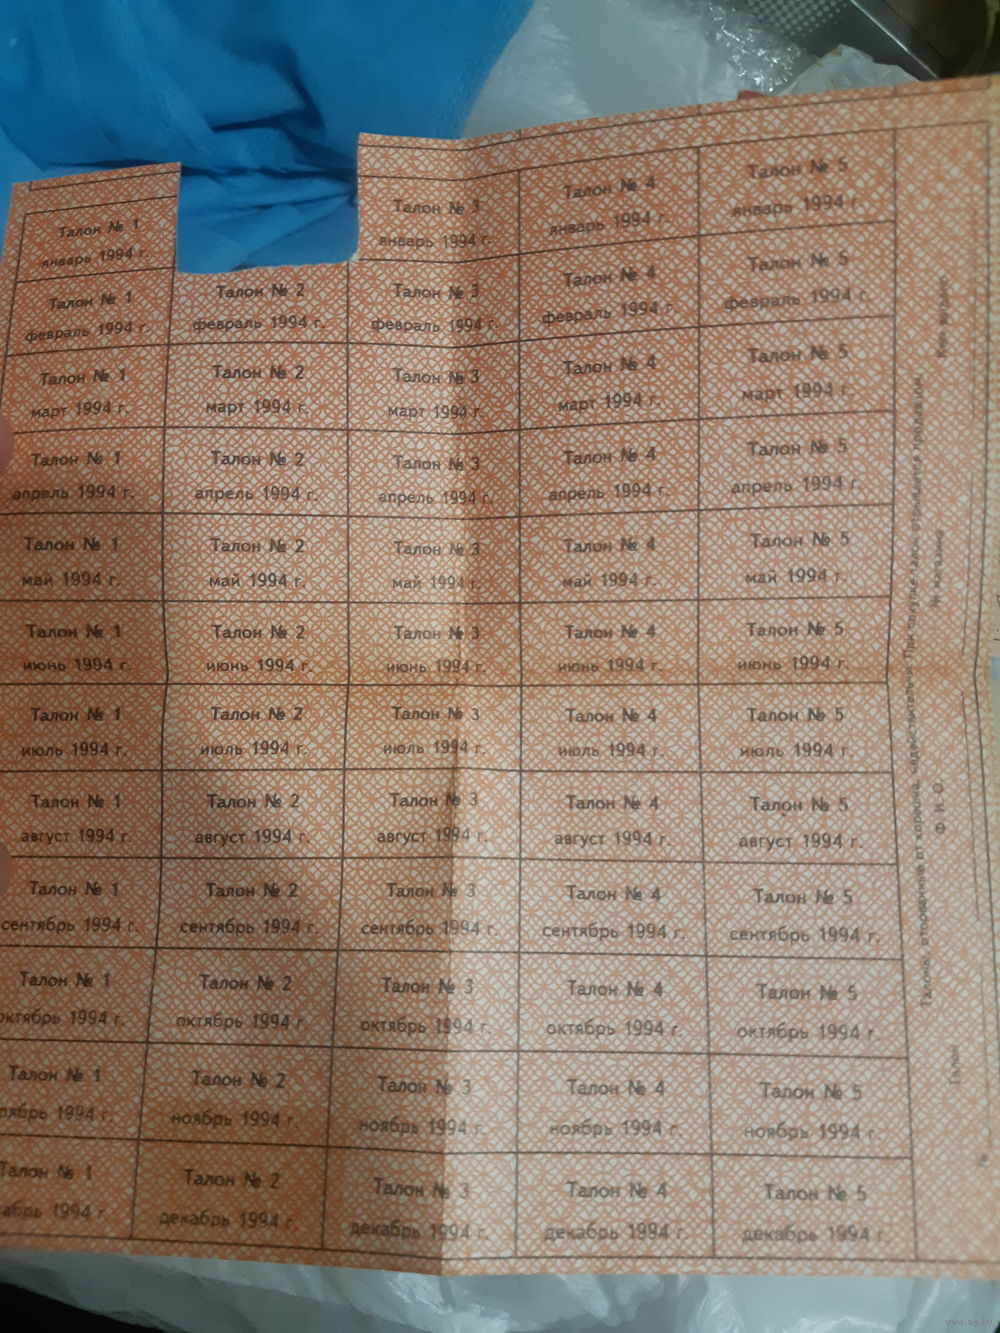 Талон № 1
январь 1994 г.
Талон № 3
январь 1994 г.
Талон № 4
январь 1994 г.
Талон № 5
январь 1994 г.
Талон № 1
февраль 1994 г.
Талон № 2
февраль 1994 г.
Талон № 3
февраль 1994 г.
Талон № 4
февраль 1994 г.
Талон № 5
февраль 1994 г.
Талон № 1
март 1994 г.
Талон № 2
март 1994 г.
Талон № 3
март 1994 г.
Талон № 4
март 1994 г.
Талон № 5
март 1994 г.
Талон № 1
апрель 1994 г.
Талон № 2
апрель 1994 г.
Талон № 3
апрель 1994 г.
Талон № 4
апрель 1994 г.
Талон № 5
апрель 1994 г.
Талон № 1
май 1994 г.
Талон № 2
май 1994 г.
Талон № 3
май 1994 г.
Талон № 4
май 1994 г.
Талон № 5
май 1994 г.
Талон № 1
июнь 1994 г.
Талон № 2
июнь 1994 г.
Талон № 3
июнь 1994 г.
Талон № 4
июнь 1994 г.
Талон № 5
июнь 1994 г.
Талон № 1
июль 1994 г.
Талон № 2
июль 1994 г.
Талон № 3
июль 1994 г.
Талон № 4
июль 1994 г.
Талон № 5
июль 1994 г.
Талон № 1
август 1994 г.
Талон № 2
август 1994 г.
Талон № 3
август 1994 г.
Талон № 4
август 1994 г.
Талон № 5
август 1994 г.
Талон № 1
сентябрь 1994 г.
Талон № 2
сентябрь 1994 г.
Талон № 3
сентябрь 1994 г.
Талон № 4
сентябрь 1994 г.
Талон № 5
сентябрь 1994 г.
Талон № 1
октябрь 1994 г.
Талон № 2
октябрь 1994 г.
Талон № 3
октябрь 1994 г.
Талон № 4
октябрь 1994 г.
Талон № 5
октябрь 1994 г.
Талон № 1
ябрь 1994 г.
Талон № 2
ноябрь 1994 г.
Талон № 3
ноябрь 1994 г.
Талон № 4
ноябрь 1994 г.
Талон № 5
ноябрь 1994 г.
Талон № 1
кабрь 1994 г.
Талон № 2
декабрь 1994 г.
Талон № 3
декабрь 1994 г.
Талон № 4
декабрь 1994 г.
Талон № 5
декабрь 1994 г.
Талоны, оторванные от корешка, недействительны. При покупке талон отрывается продавцом.
Талон Ф. И. О. № магазина Кем выдано
№
www.ay.by